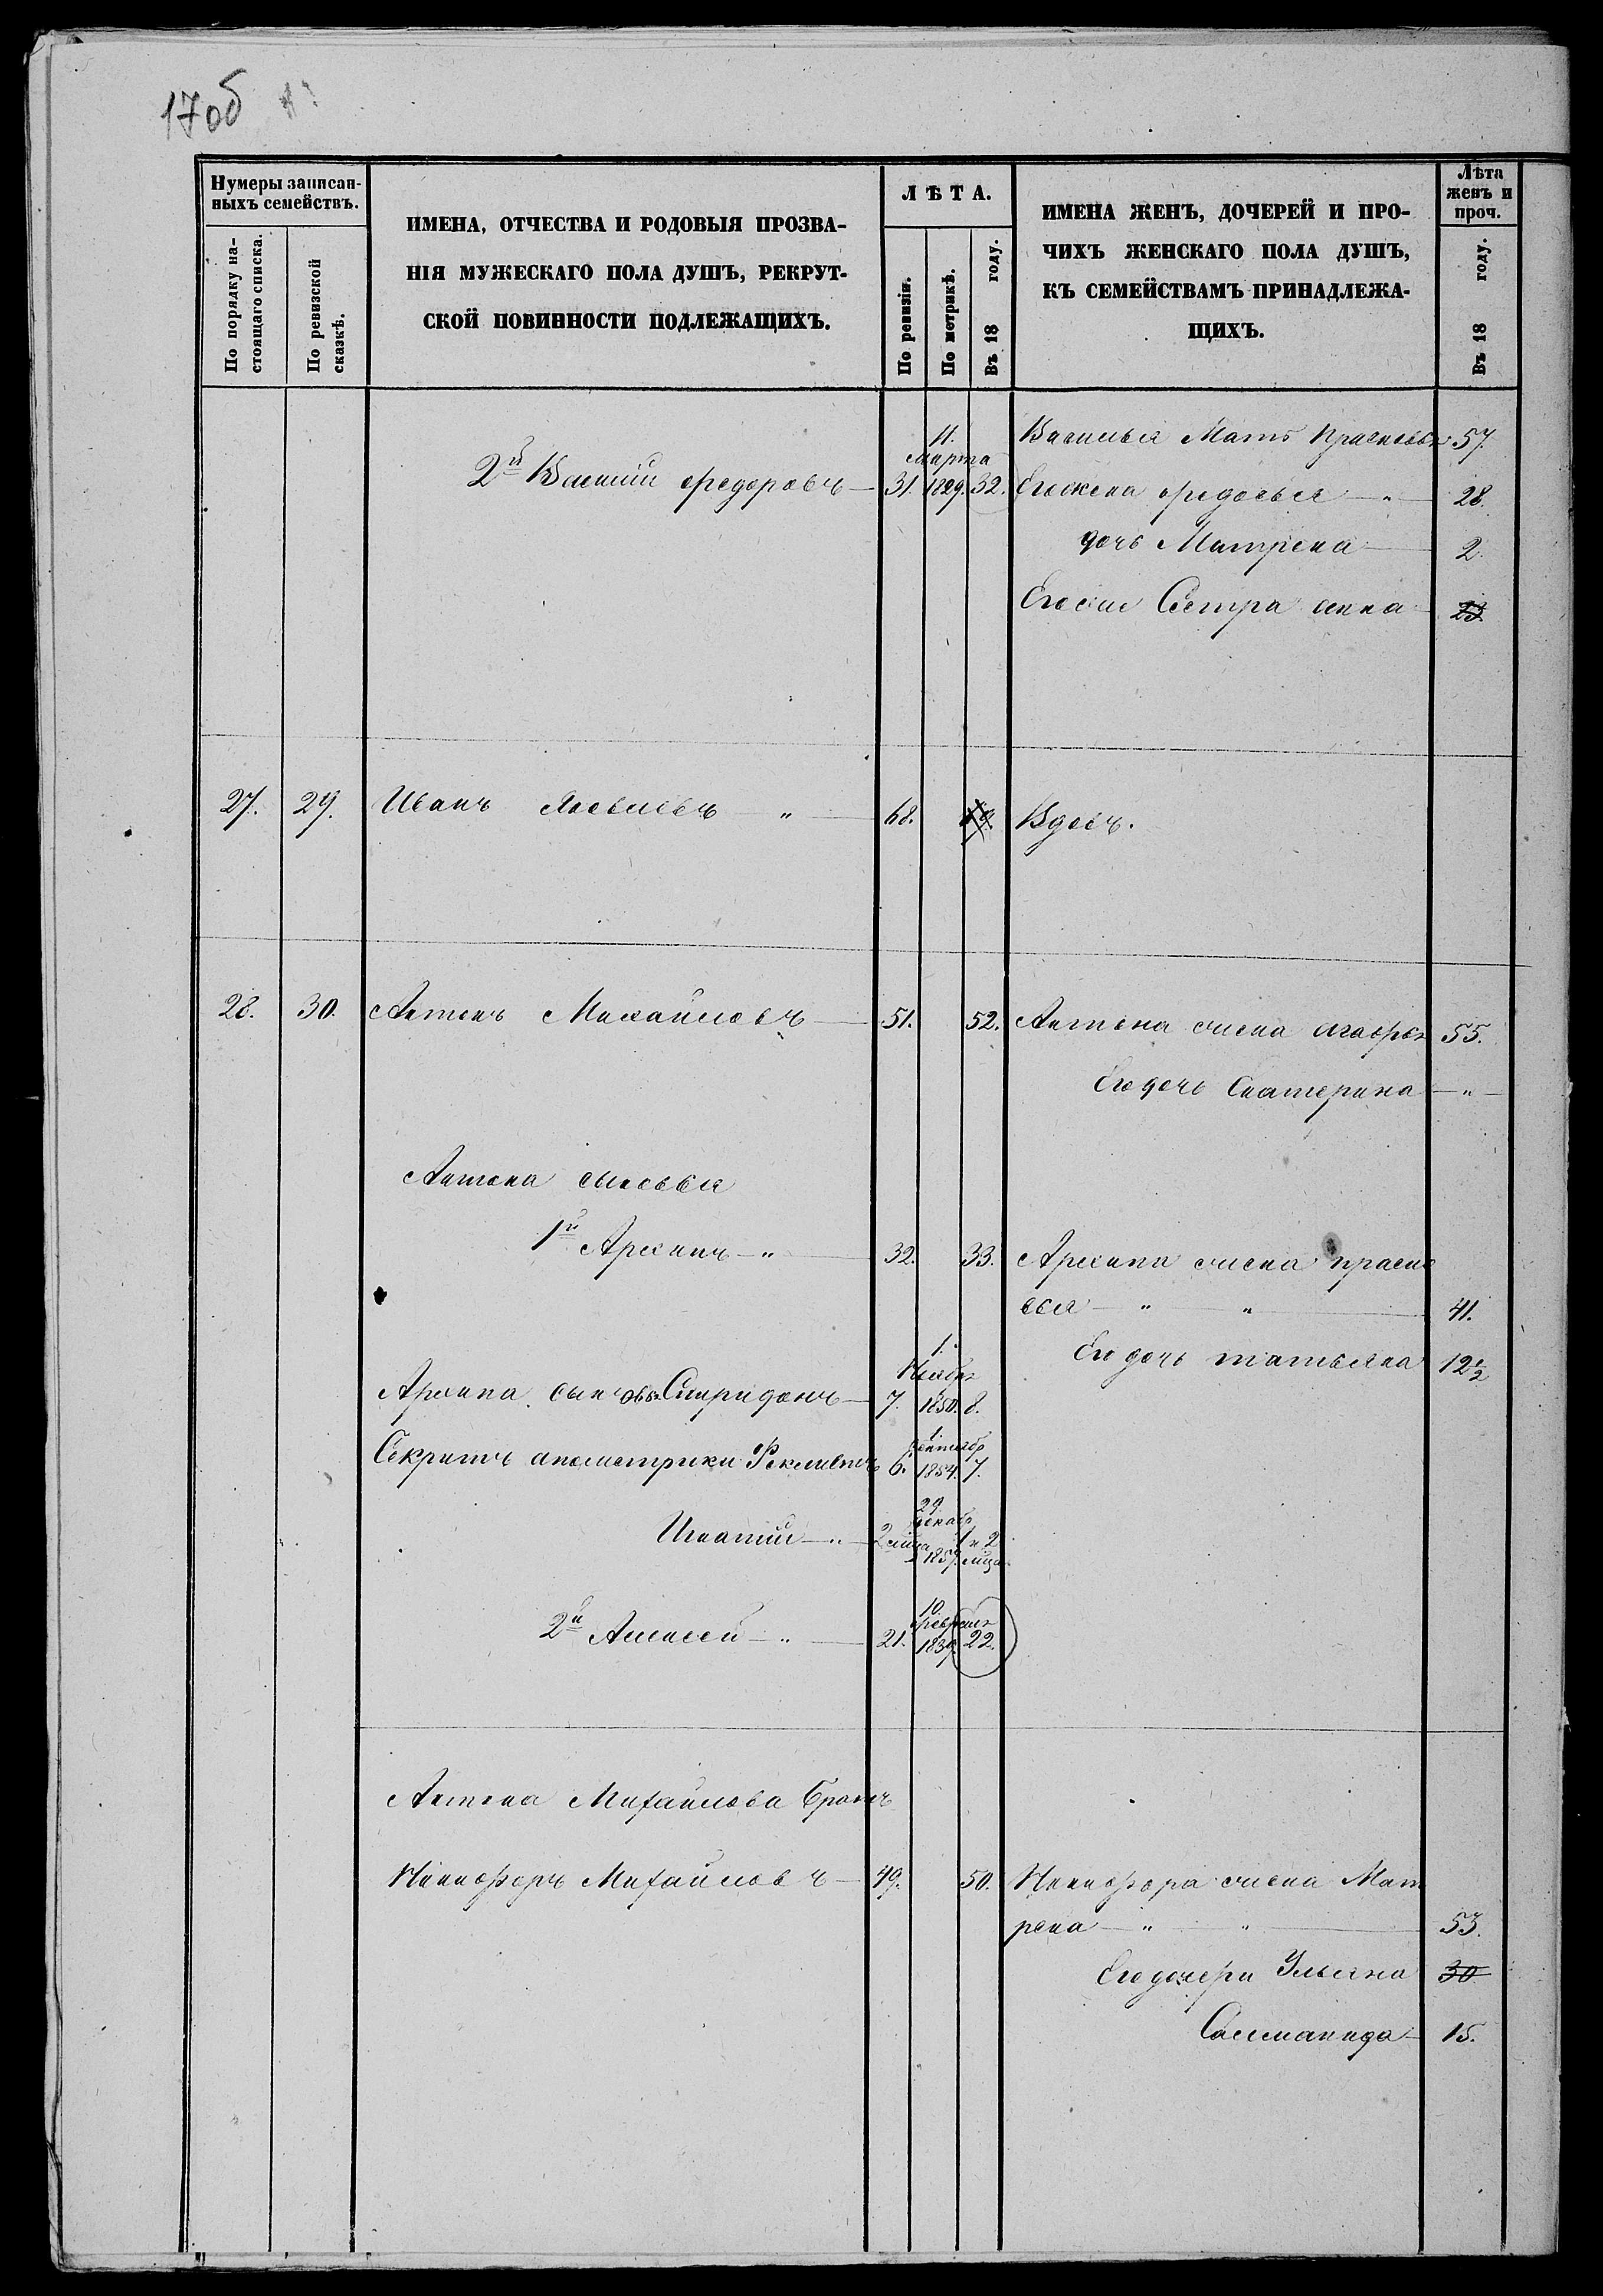 17об
Нумеры записан-
ныхъ семействъ.
По порядку на-
стоящаго списка.
По ревизской
сказкѣ.
ИМЕНА, ОТЧЕСТВА И РОДОВЫЯ ПРОЗВА-
НІЯ МУЖЕСКАГО ПОЛА ДУШЪ, РЕКРУТ-
СКОЙ ПОВИННОСТИ ПОДЛЕЖАЩИХЪ.
ЛѢТА.
По ревизіи.
По метрикѣ.
Въ 18 году.
ИМЕНА ЖЕНЪ, ДОЧЕРЕЙ И ПРО-
ЧИХЪ ЖЕНСКАГО ПОЛА ДУШЪ,
КЪ СЕМЕЙСТВАМЪ ПРИНАДЛЕЖА-
ЩИХЪ.
Лѣта
женъ и
проч.
Въ 18 году.
11. Василья Мать Прасковья 57.
марта
2й Василій Федоровъ 31. 1829. 32. Его жена Федосья 28.
дочь Матрена 2.
Сестра анна 23
27. 29. Иванъ Яковлевъ " 68. Вдовъ.
28. 30. Антонъ Михайловъ 51. 52. Антона жена агафья 55.
Его дочь Екатерина "
Антона сыновья
1й Архипъ " 32. 33. Архипа жена праско
вья " " 41.
1. Его дочь татьяна 12½
Ноября
Архипа сыновья Спиридонъ 7. 1850. 8.
1.
сентябр
6. 1854. 7.
29
декабр
Игнатій " 2 мѣца 1 и 2
1857. мѣца
10
февраля
2й Алексей " 21. 1839. 22.
Антона Михайлова братъ
Никифоръ Михайловъ 49. 50. Никифора жена Мат
рена " " 53.
Его дочери Ульяна 30
Саломанида 15.